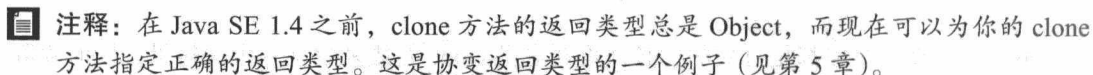 注释：在 Java SE 1.4 之前，clone 方法的返回类型总是 Object，而现在可以为你的 clone
方法指定正确的返回类型。这是协变返回类型的一个例子（见第 5 章）。